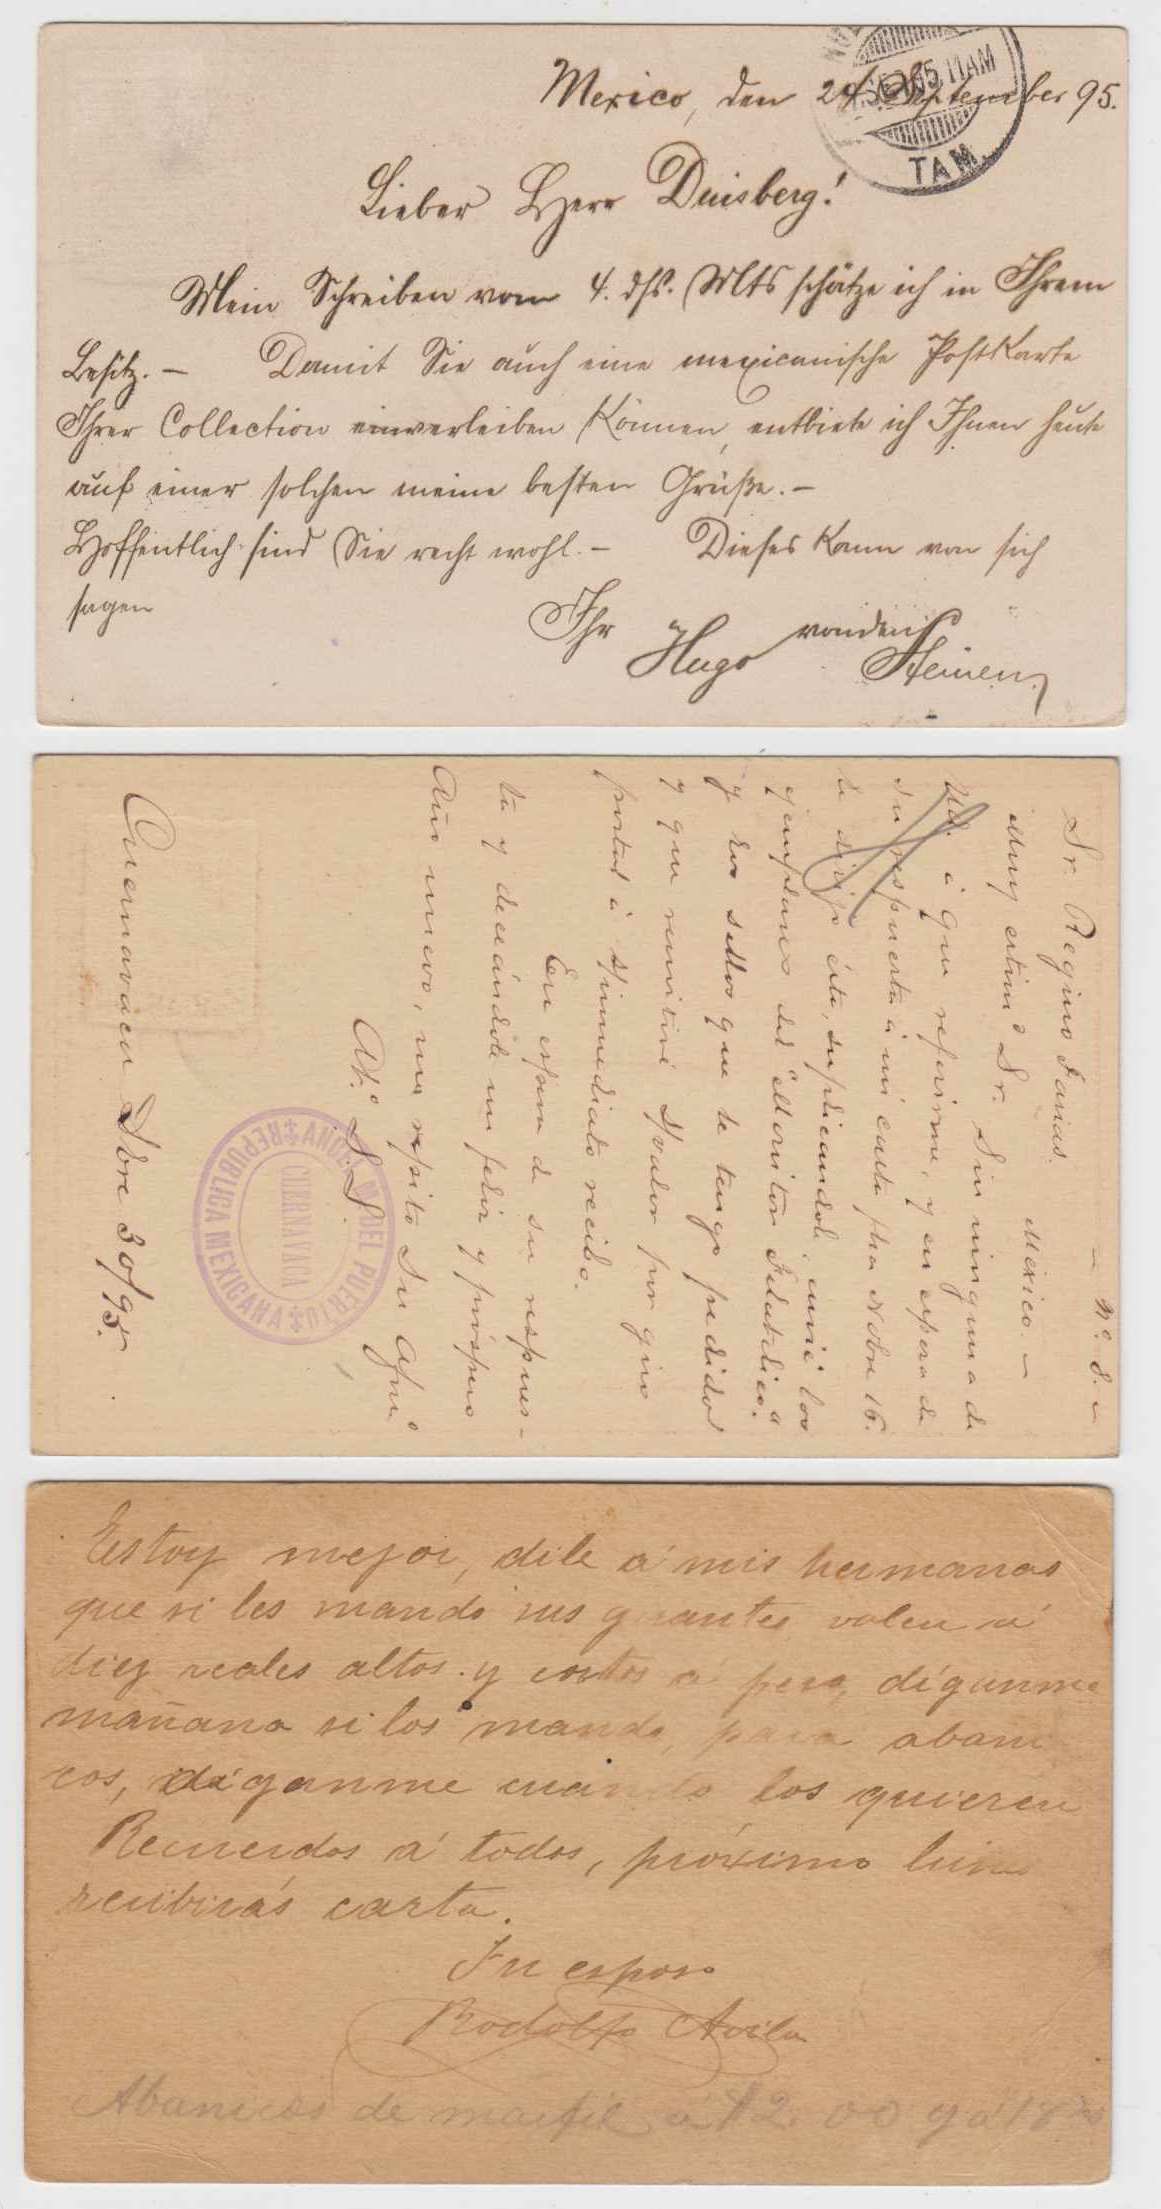 Mexico, den 24. September 95.
SEP 95 11 AM
TAM.
Lieber Herr Duisberg!
Mein Schreiben vom 4. dss. Mts schätze ich in Ihrem
Besitz. – Damit Sie auch eine mexicanische Postkarte
Ihrer Collection einverleiben können, entbiete ich Ihnen heute
auf einer solchen meine besten Grüße. –
Hoffentlich sind Sie recht wohl. – Dieses kann von sich
sagen
Ihr
Hugo vonden Steinen
Nº 8.
Sr. Regino Farias. Mexico. –
Muy estimº Sr. Sin ninguna de
Ud. á que referirme, y en espera de
su respuesta á mi carta fha Nobre 16.
le dirijo ésta, suplicandole envié los
ejemplares del "Monitor Filatelico",
y los sellos que le tengo pedidos
y que remitiré s/valor por giro
postal á s/inmediato recibo.
En espera de su respues-
ta y deseándole un feliz y próspero
Año nuevo, me repito Su Afmº
At.º S.S.
DEL PUERTO
CUERNAVACA
REPUBLICA MEXICANA
Cuernavaca Dbre 30/95.
Estoy mejor, dile á mis hermanas
que si les mando sus guantes valen á
diez reales altos y cortos á peso, díganme
mañana si los mando, para abani
cos, díganme cuando los quieren
Recuerdos á todos, próximo lunes
recibirás carta.
Tu esposo
Rodolfo Avila
Abanicos de marfil á 12.00 y á 18